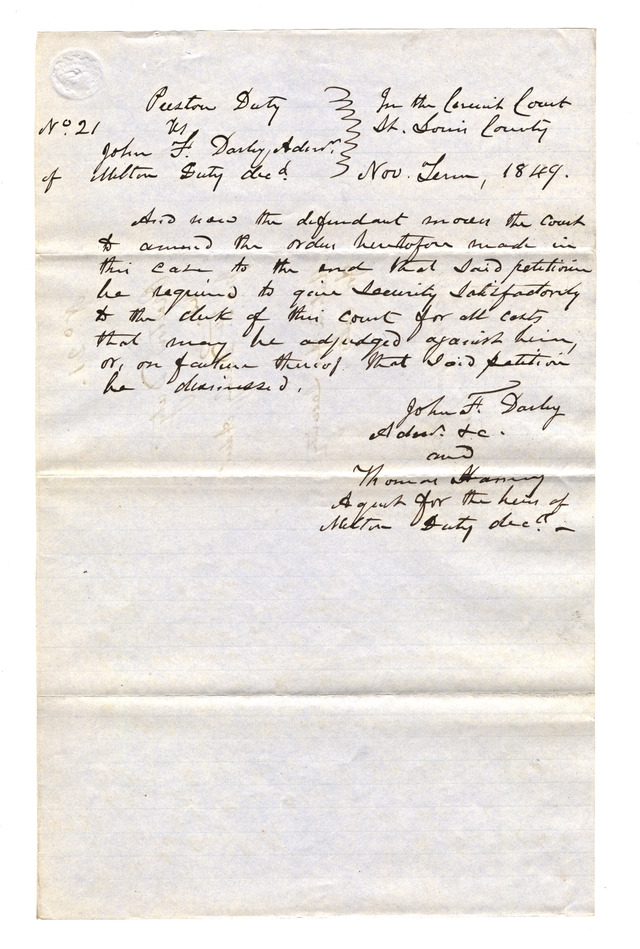 Preston Duty
No. 21 vs
John F. Darby Admr.
of Milton Duty decd.
In the Circuit Court
St. Louis County
Nov. Term, 1849.
And now the defendant moves the court
to amend the order heretofore made in
this case to the end that said petitioner
be required to give security satisfactorily
to the clerk of this court for all costs
that may be adjudged against him,
or, on failure thereof that said petition
be dismissed.
John F. Darby
Admr. &c.
and
Thomas Harney
Agent for the heirs of
Milton Duty decd. –